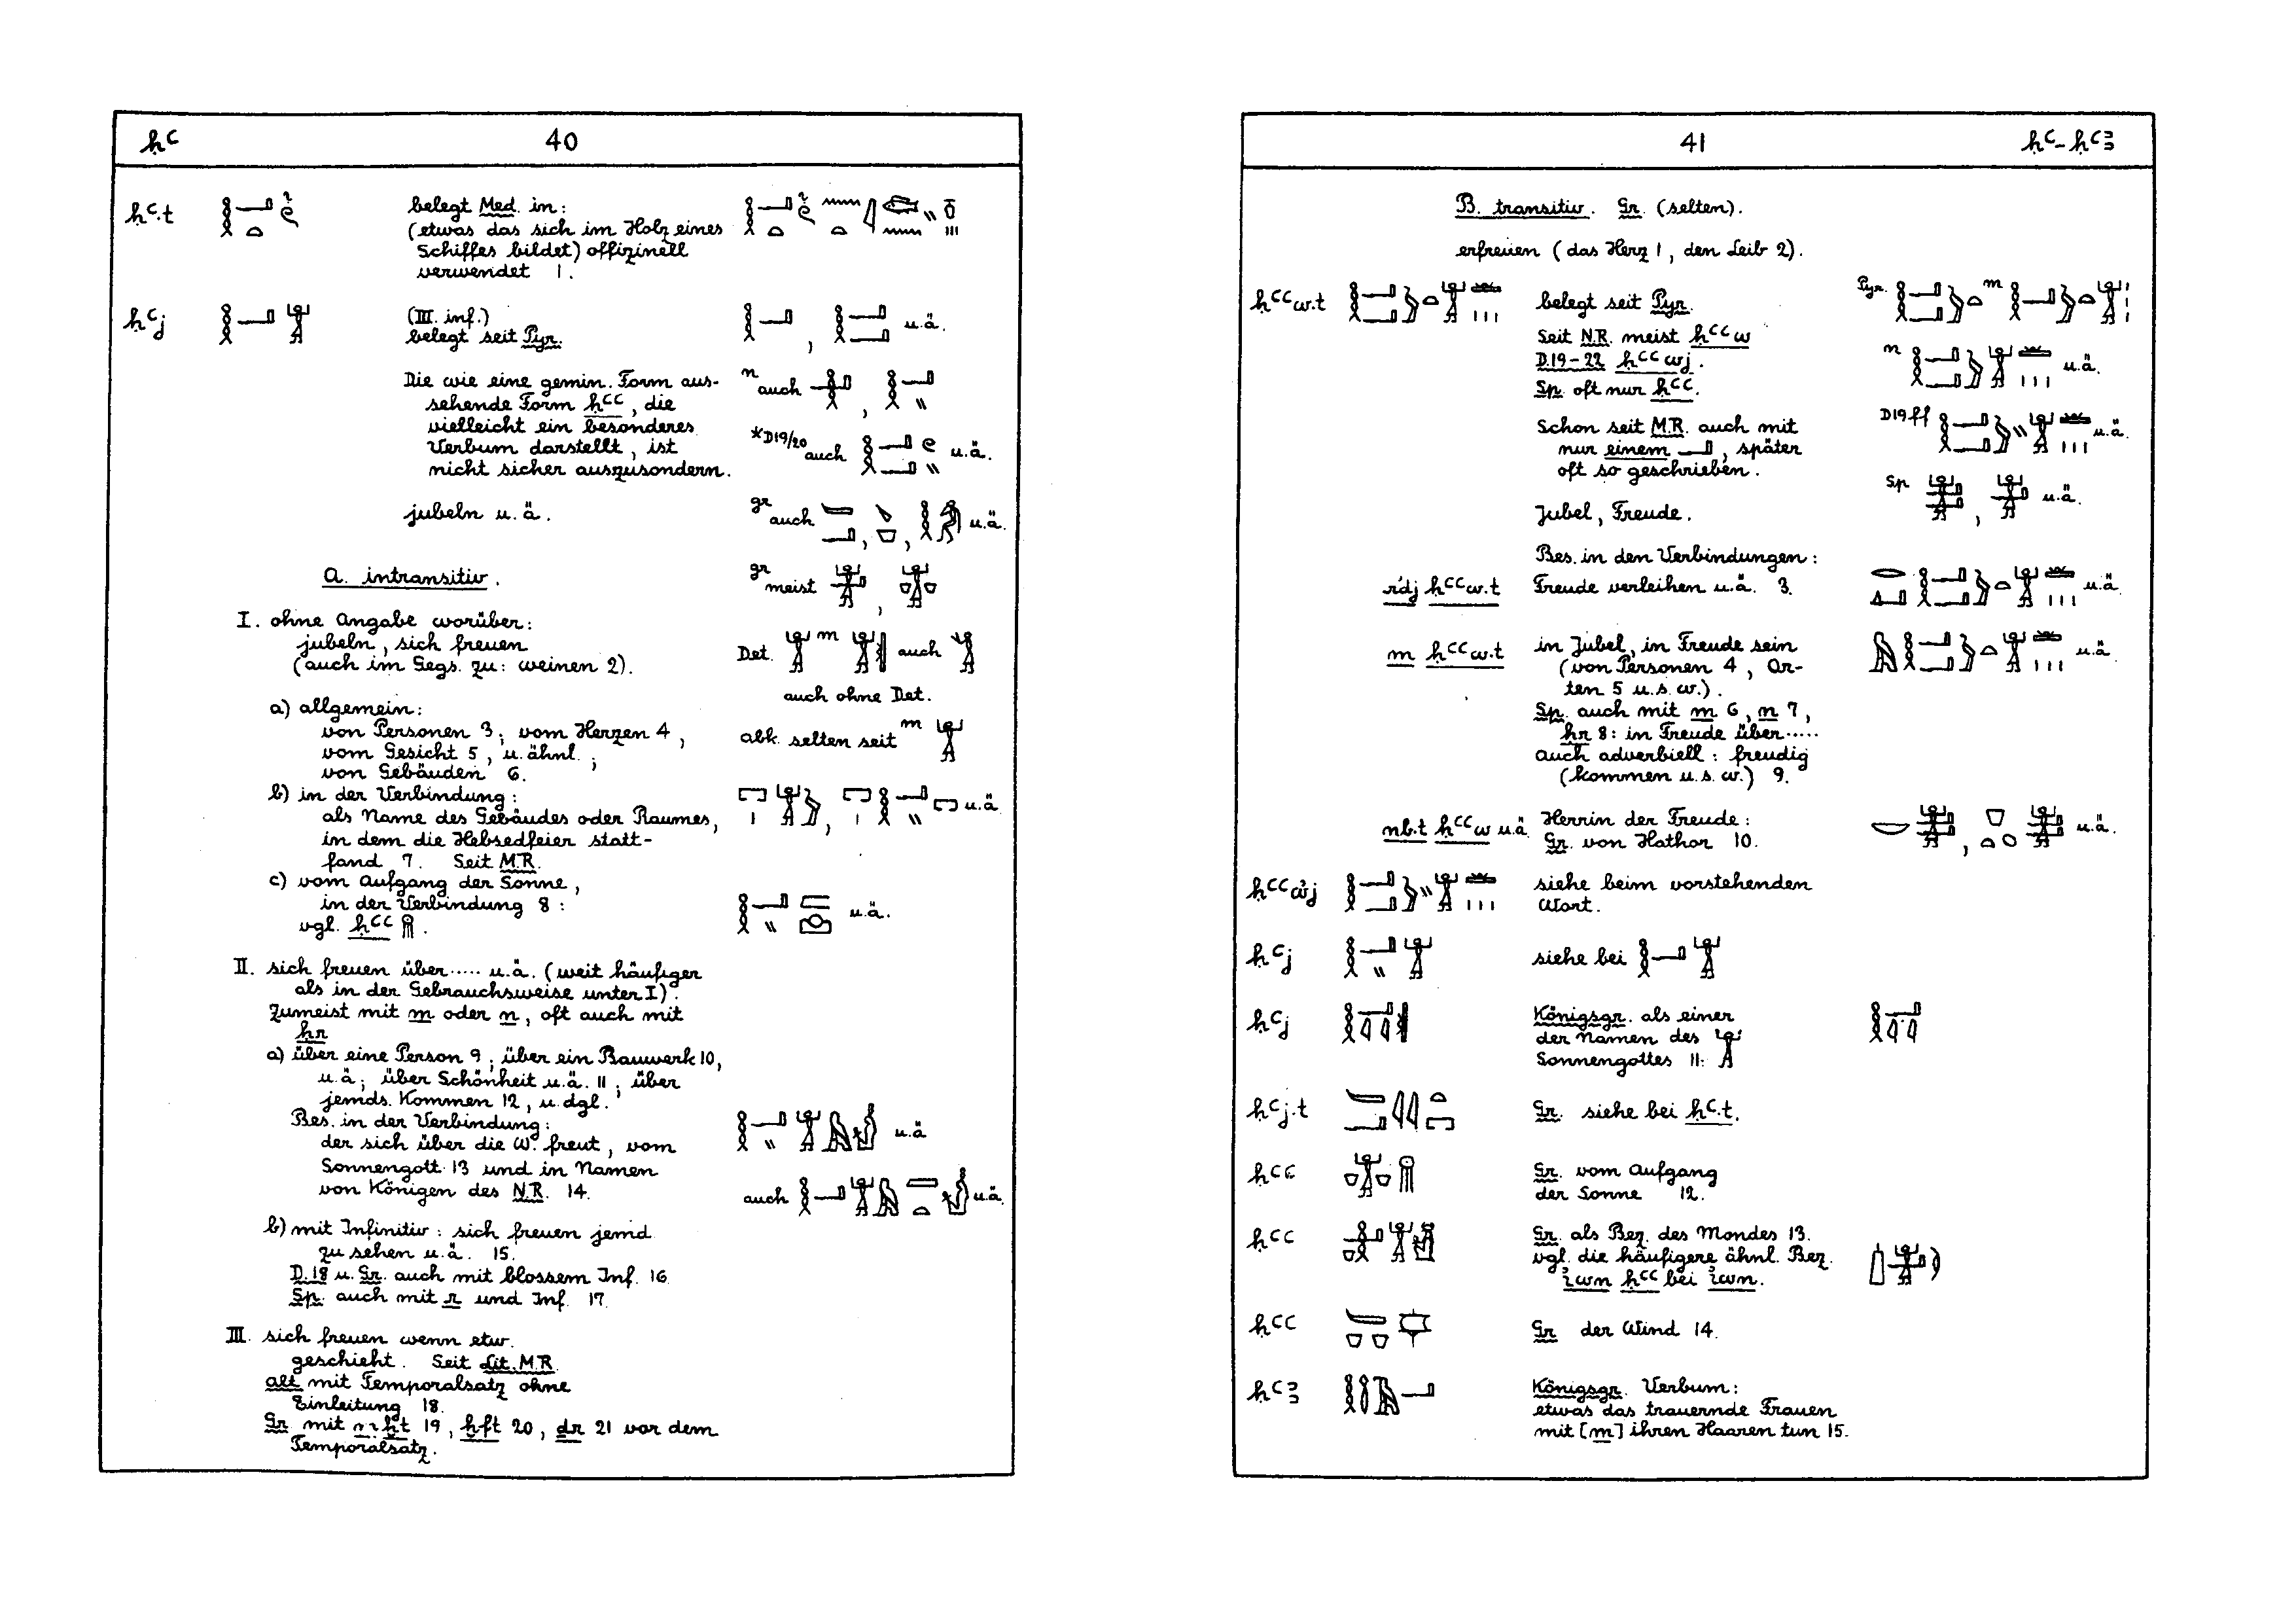 ḥꜥ 40
ḥꜥ.t 𓎛𓂝𓏏 belegt Med. in:
(etwas das sich im Holz eines
Schiffes bildet) offizinell
verwendet 1.
ḥꜥj 𓎛𓂝𓀠 (III. inf.) 𓎛𓂝, 𓎛𓂝𓂝 u.ä.
belegt seit Pyr.
Die wie eine gemin. Form aus-
sehende Form ḥꜥꜥ, die
vielleicht ein besonderes
Verbum darstellt, ist
nicht sicher auszusondern.
n auch 𓎛𓂝, 𓎛𓂝𓏭
*D19/20 auch 𓎛𓂝𓏲𓂝𓏭 u.ä.
jubeln u.ä.
gr auch u.ä.
gr meist
A. intransitiv.
I. ohne Angabe worüber:
jubeln, sich freuen
(auch im Gegs. zu: weinen 2).
Det. 𓀠 m auch
auch ohne Det.
a) allgemein:
von Personen 3; vom Herzen 4,
vom Gesicht 5, u. ähnl.;
von Gebäuden 6.
abk. selten seit m 𓀠
b) in der Verbindung:
als Name des Gebäudes oder Raumes,
in dem die Hebsedfeier statt-
fand 7. Seit M.R.
u.ä.
c) vom Aufgang der Sonne,
in der Verbindung 8:
vgl. ḥꜥꜥ.
u.ä.
II. sich freuen über..... u.ä. (weit häufiger
als in der Gebrauchsweise unter I).
Zumeist mit m oder n, oft auch mit
ḥr
a) über eine Person 9; über ein Bauwerk 10,
u.ä; über Schönheit u.ä. 11; über
jemds. Kommen 12, u. dgl.
Bes. in der Verbindung:
der sich über die W. freut, vom
Sonnengott 13 und in Namen
von Königen des N.R. 14.
u.ä
auch u.ä.
b) mit Infinitiv: sich freuen jemd
zu sehen u.ä. 15.
D.18 u. Gr. auch mit blossem Inf. 16.
Sp. auch mit r und Inf. 17.
III. sich freuen wenn etw.
geschieht. Seit Lit. M.R.
alt mit Temporalsatz ohne
Einleitung 18.
Gr mit m ḫt 19, ḫft 20, dr 21 vor dem
Temporalsatz.
41 ḥꜥ-ḥꜥꜣ
B. transitiv. Gr. (selten).
erfreuen (das Herz 1, den Leib 2).
ḥꜥꜥw.t belegt seit Pyr. Pyr. m
Seit N.R. meist ḥꜥꜥw
D.19-22 ḥꜥꜥwj.
Sp. oft nur ḥꜥꜥ.
n u.ä.
Schon seit M.R. auch mit
nur einem 𓂝, später
oft so geschrieben.
D19ff u.ä.
Jubel, Freude.
Sp u.ä.
Bes. in den Verbindungen:
rdj ḥꜥꜥw.t Freude verleihen u.ä. 3. u.ä.
m ḥꜥꜥw.t in Jubel, in Freude sein u.ä.
(von Personen 4, Or-
ten 5 u.s.w.).
Sp. auch mit m 6, n 7,
ḥr 8: in Freude über.....
auch adverbiell: freudig
(kommen u.s.w.) 9.
nb.t ḥꜥꜥw u.ä Herrin der Freude: u.ä.
Gr. von Hathor 10.
ḥꜥꜥwj siehe beim vorstehenden
Wort.
ḥꜥj 𓎛𓂝𓏭𓀠 siehe bei 𓎛𓂝𓀠
ḥꜥj Königsgr. als einer 𓎛𓂝𓇋𓇋
der Namen des
Sonnengottes 11: 𓀠
ḥꜥj.t Gr. siehe bei ḥꜥ.t.
ḥꜥꜥ Gr. vom Aufgang
der Sonne 12.
ḥꜥꜥ Gr. als Bez. des Mondes 13.
vgl. die häufigere ähnl. Bez.
iwn ḥꜥꜥ bei iwn.
ḥꜥꜥ Gr der Wind 14.
ḥꜥꜣ Königsgr. Verbum:
etwas das trauernde Frauen
mit [m] ihren Haaren tun 15.